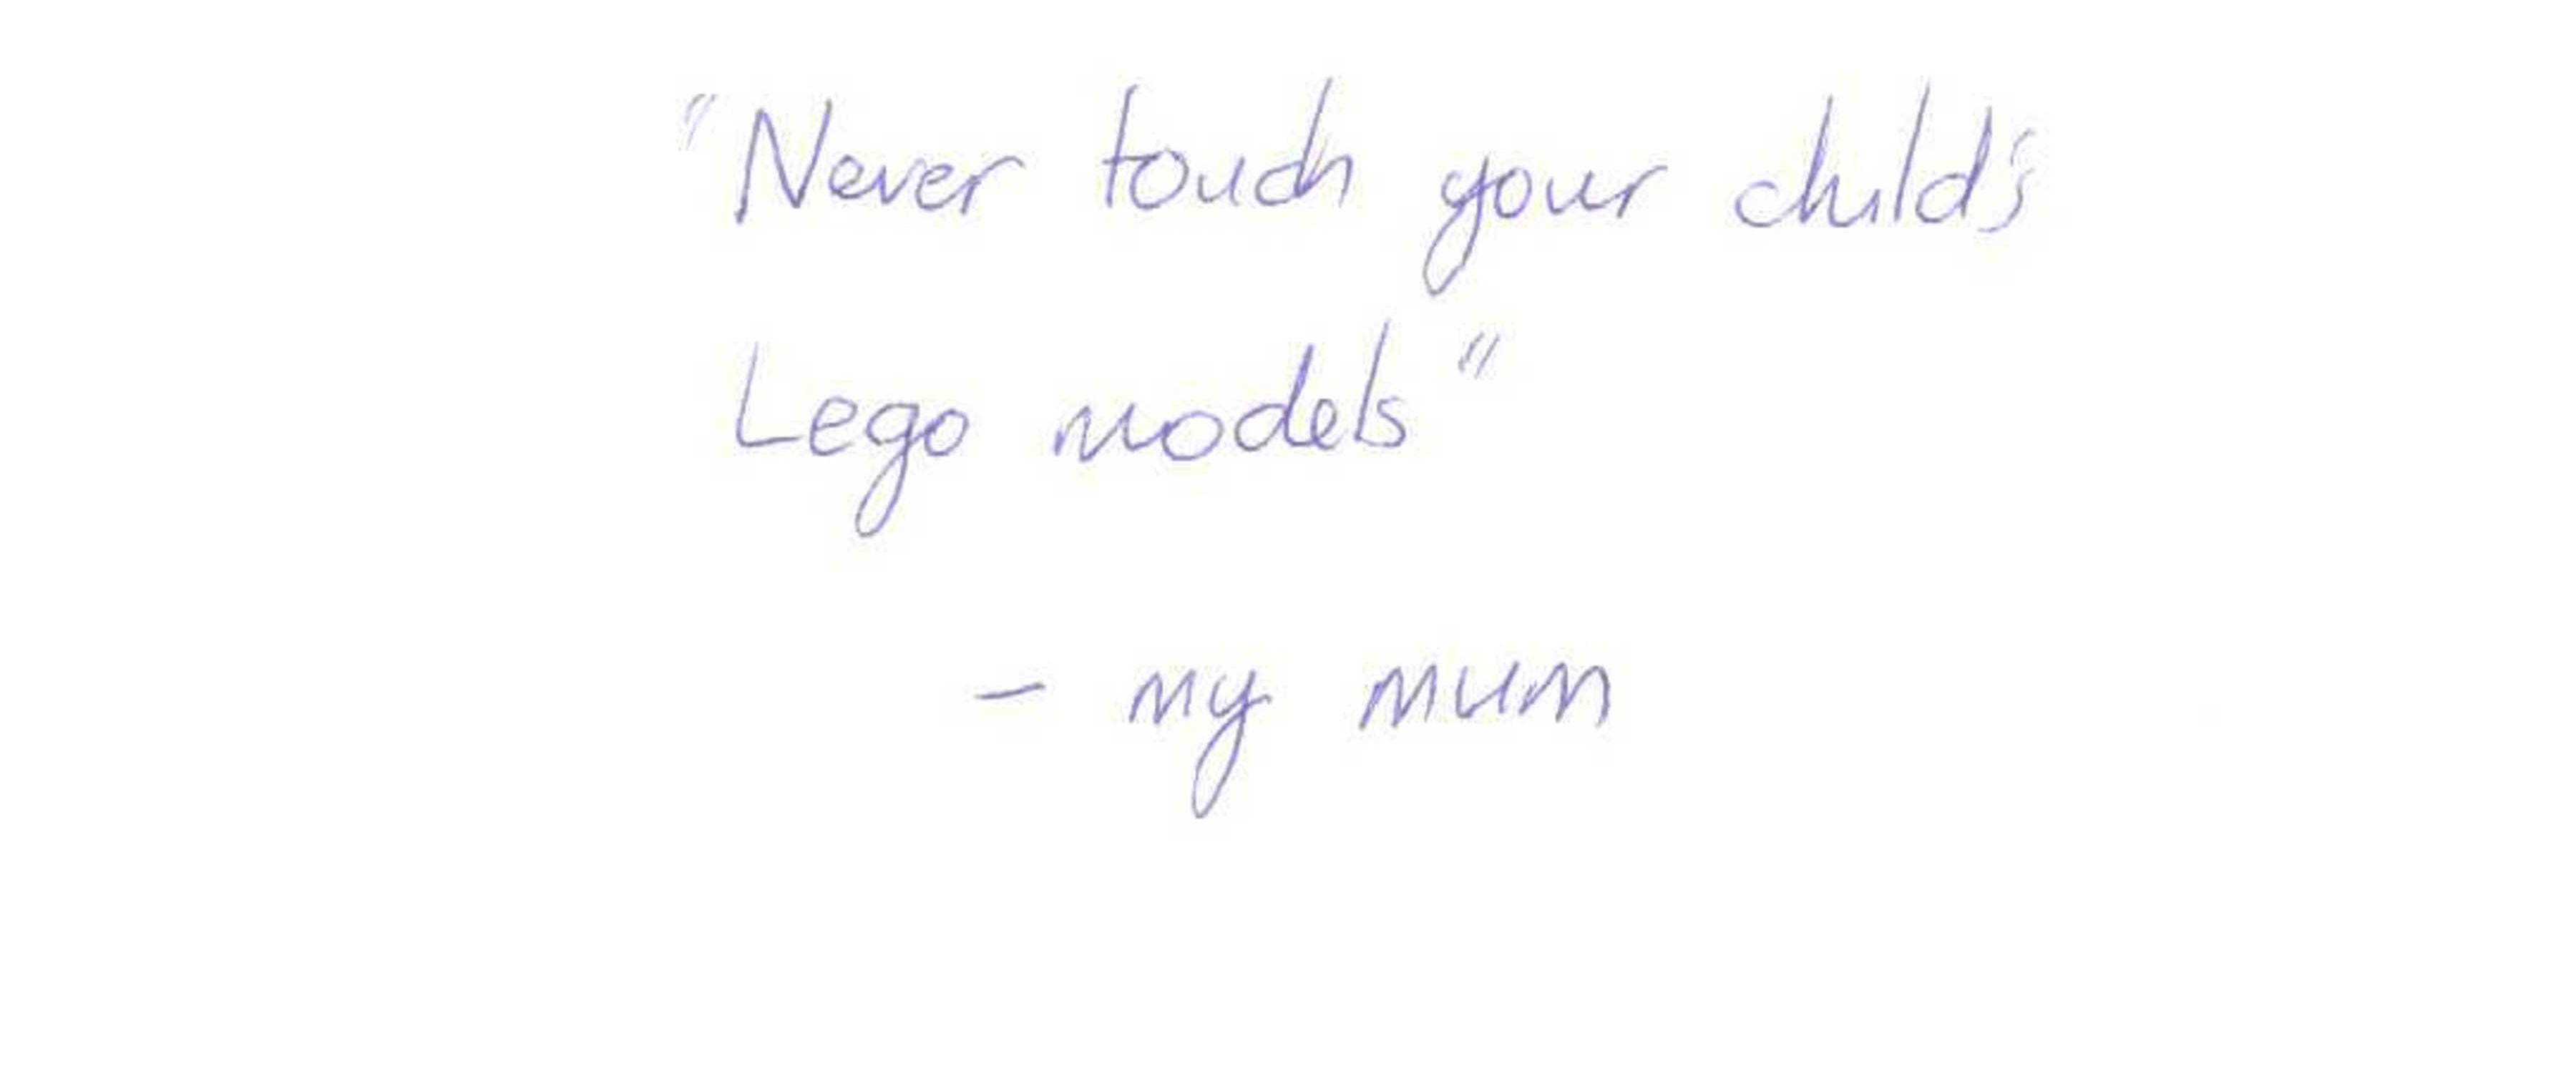 "Never touch your child's
Lego models"
- my mum